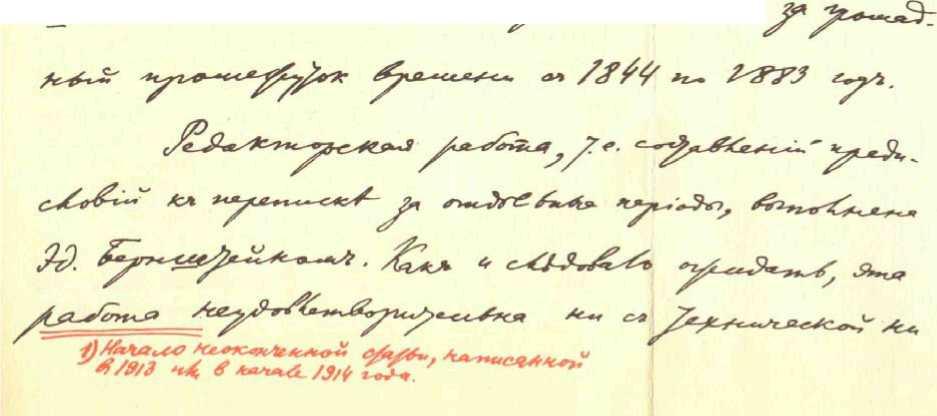 за громад-
ный промежуток времени съ 1844 по 1883 годъ.
Редакторская работа, т.е. составленій преди-
словій къ перепискѣ за отдѣльные періоды, выполнена
Эд. Бернштейномъ. Какъ и слѣдовало ожидать, эта
работа неудовлетворительна ни съ технической ни
1) Начало неоконченной статьи, написанной
в 1913 или в начале 1914 года.